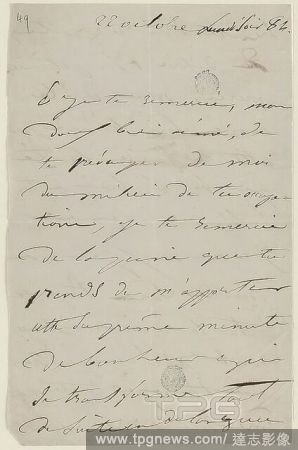 49
22 octobre lundi soir 82.
Que je te remercie, mon
doux bien aimé, de
te préoccuper de moi
au milieu de tes occupa
tions, je te remercie
de la peine que tu
prends de m'apporter
cette suprême minute
de bonheur qui
se transforme tout
de suite en
www.tpgnews.com / 達志影像
TPG